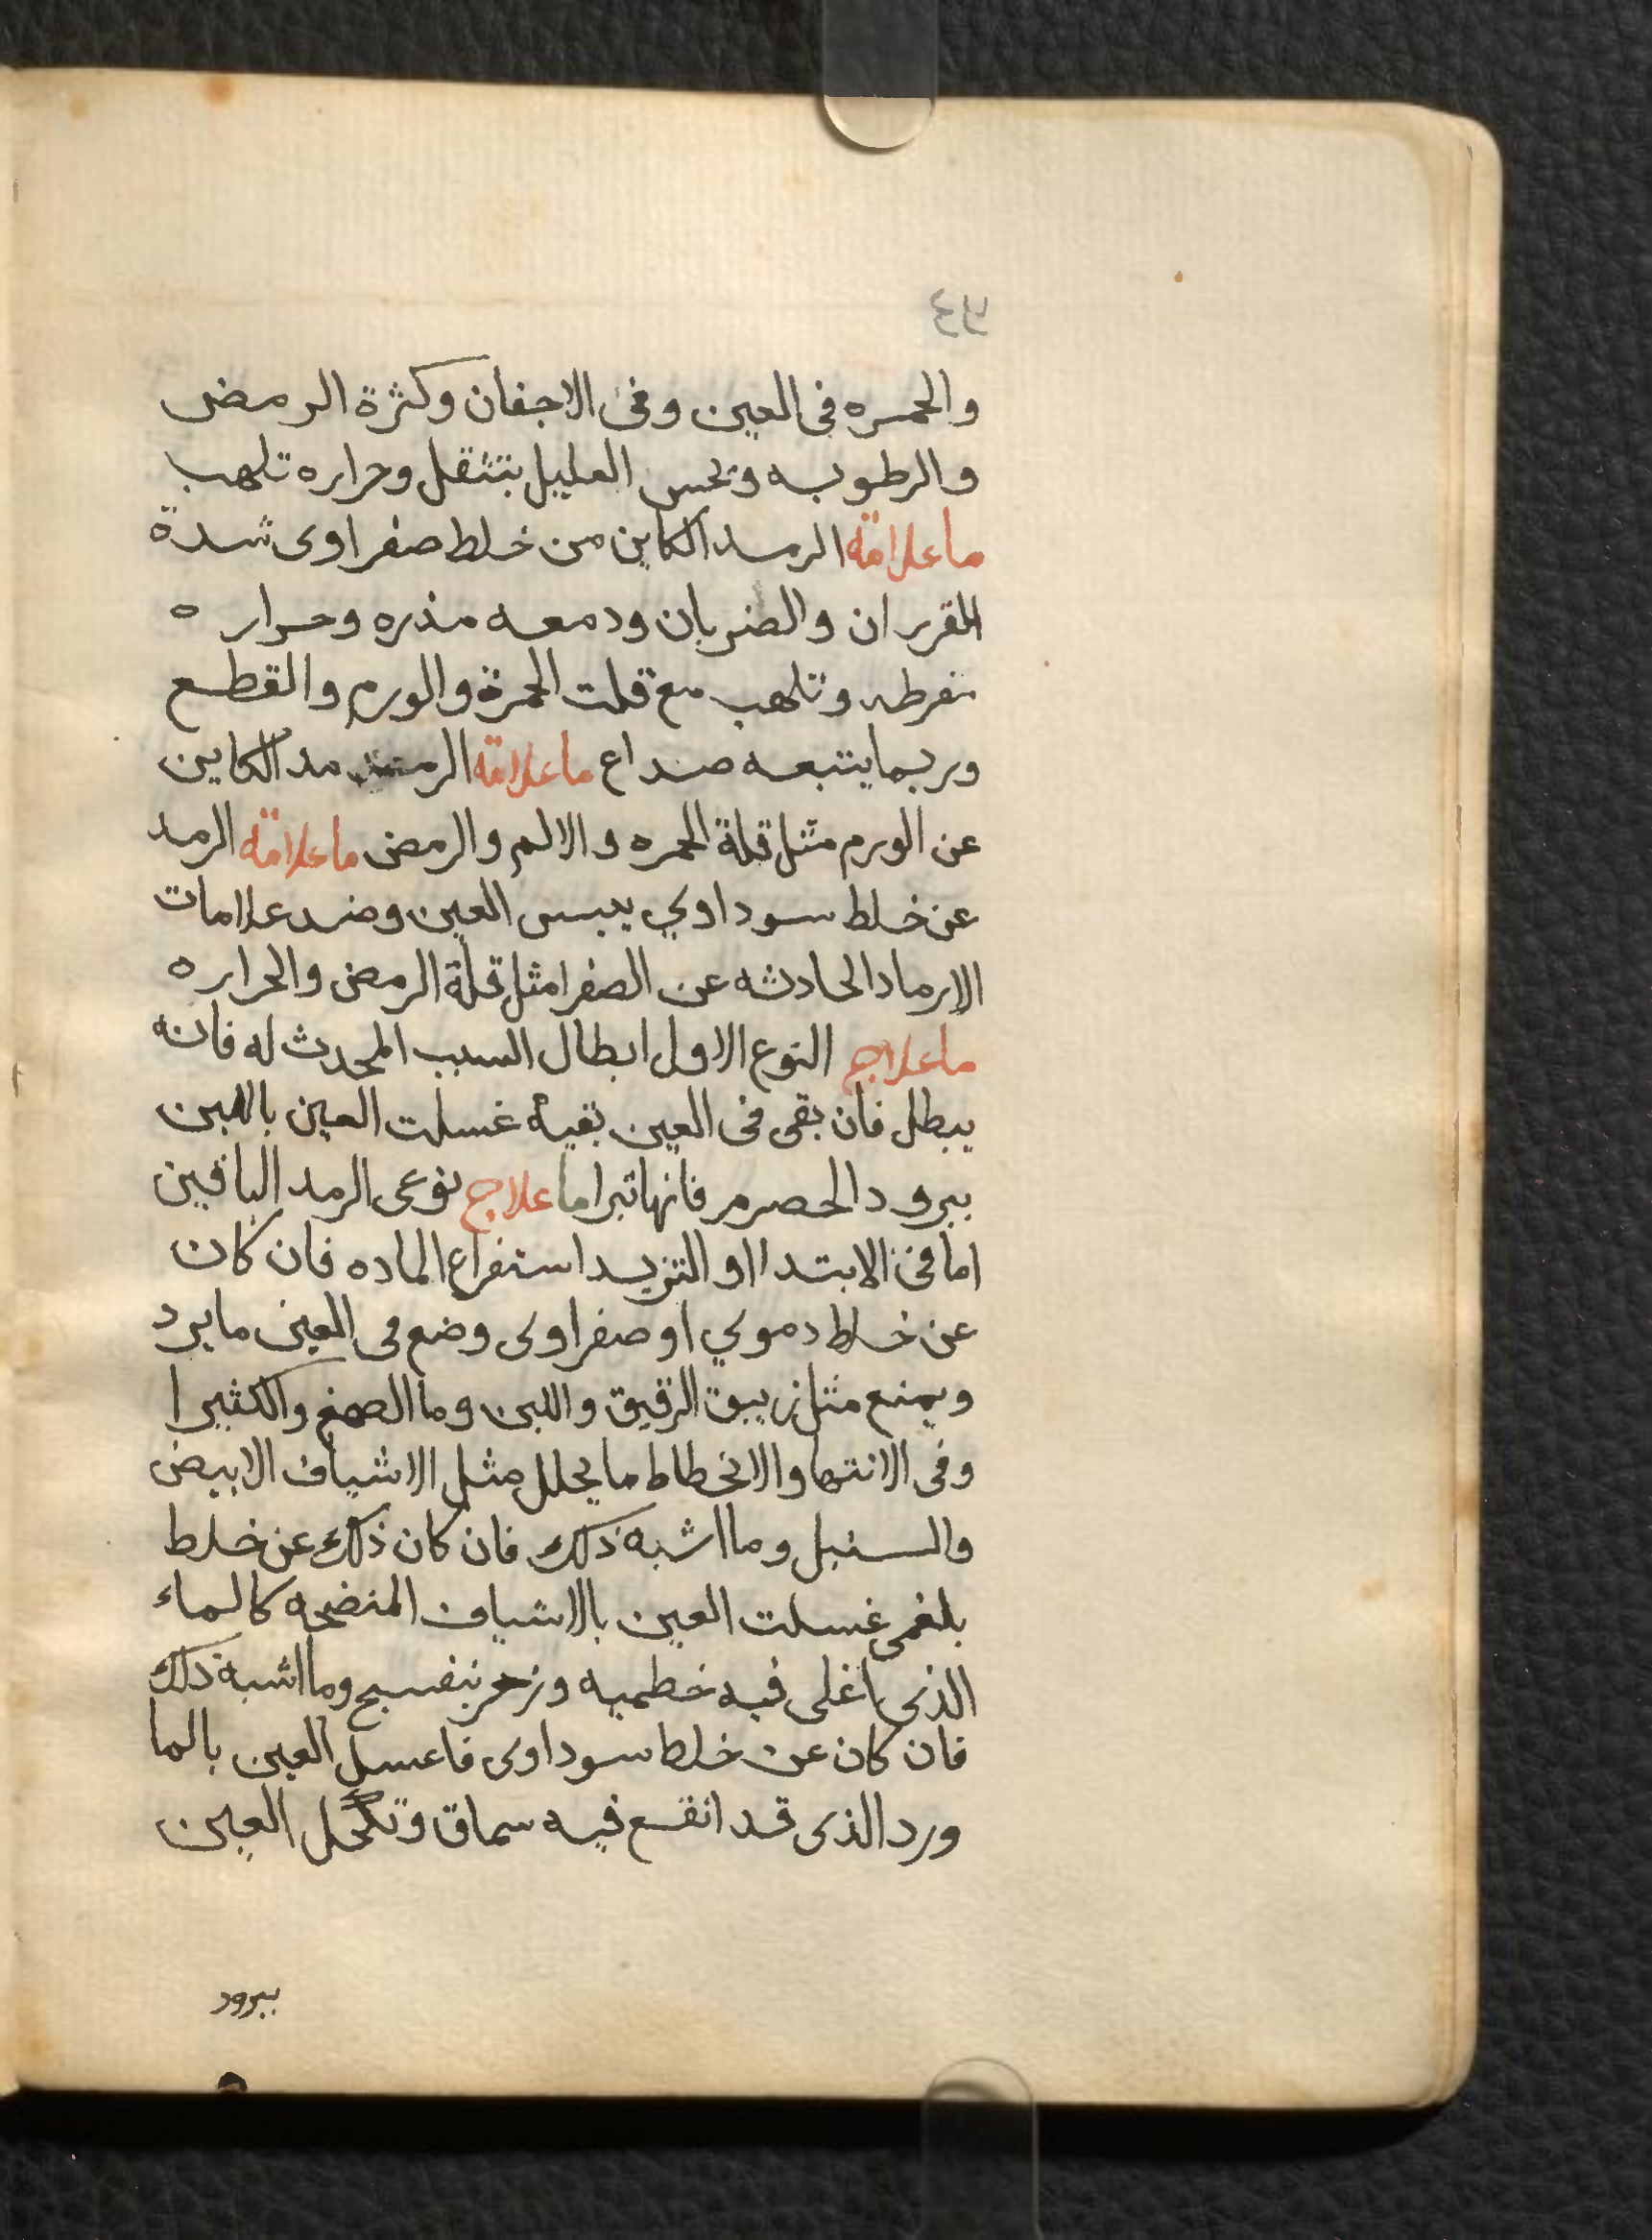 والحمره فى العين وفى الاجفان وكثرة الرمض
والرطوبه وتحس العليل بتثقل وحراره تلهب
ما علامة الرمد الكاين من خلط صفراوى شدة
والضربان ودمعه مذره وحراره
مفرطه وتلهب مع قلت الحمرة والورم والقطع
وربما يتبعه صداع ما علامة مد الكاين
عن الورم مثل قلة الحمره والالم والرمض ما علامة الرمد
عن خلط سوداوي يبس العين وضد علامات
الارماد الحادثه عن الصفرا مثل قلة الرمض والحراره
ما علاج النوع الاول ابطال السبب المحدث له فانه
يبطل فان بقى فى العين بقية غسلت العين باللبن
ببرود الحصرم فانها تبرا ما علاج نوعى الرمد الباقين
اما فى الابتدا او التزيد استفراغ الماده فان كان
عن خلط دموي او صفراوى وضع فى العين ما يرد
ويمنع مثل زيبق الرقيق واللبن وما الصمغ والكثيرا
وفى الانتها والانحطاط ما يحلل مثل الاشياف الابيض
والسنبل وما اشبه ذلك فان كان ذلك عن خلط
بلغمى غسلت العين بالاشياف المنضجه كالماء
الذى اغلى فيه خطميه وزهر بنفسج وما اشبه ذلك
فان كان عن خلط سوداوى فاغسل العين بالما
ورد الذى قد انقع فيه سماق وتكحل العين
ببرود